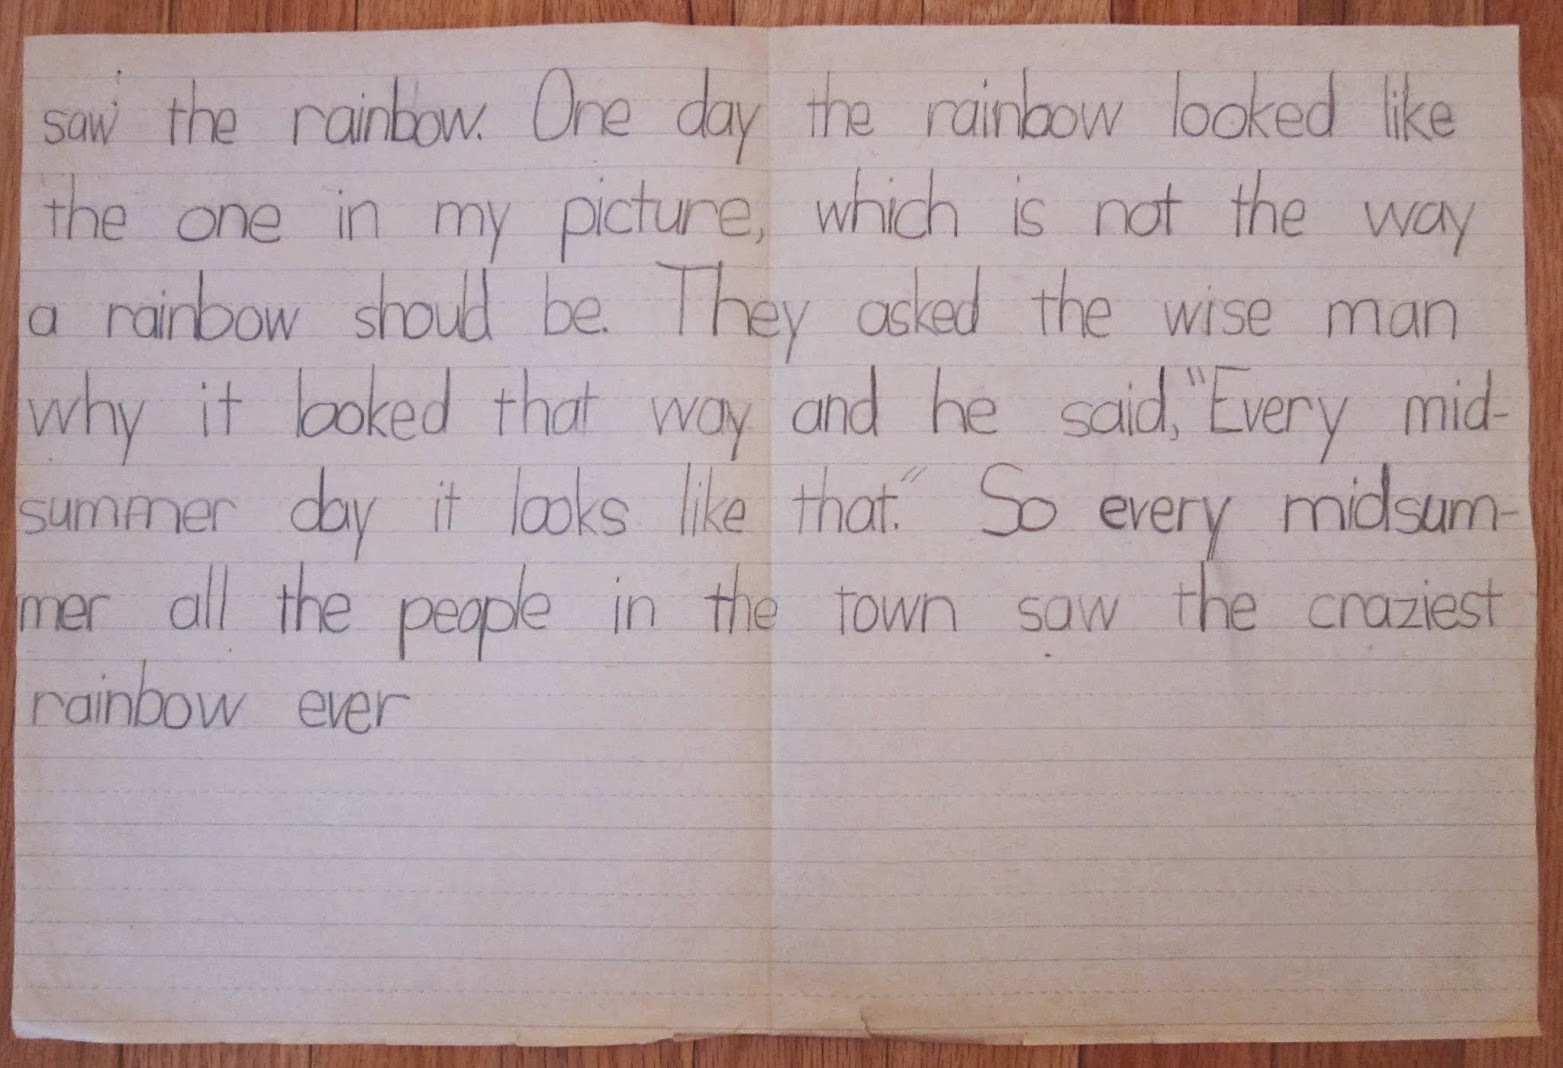 saw the rainbow. One day the rainbow looked like
the one in my picture, which is not the way
a rainbow should be. They asked the wise man
why it looked that way and he said, "Every mid-
summer day it looks like that." So every midsum-
mer all the people in the town saw the craziest
rainbow ever